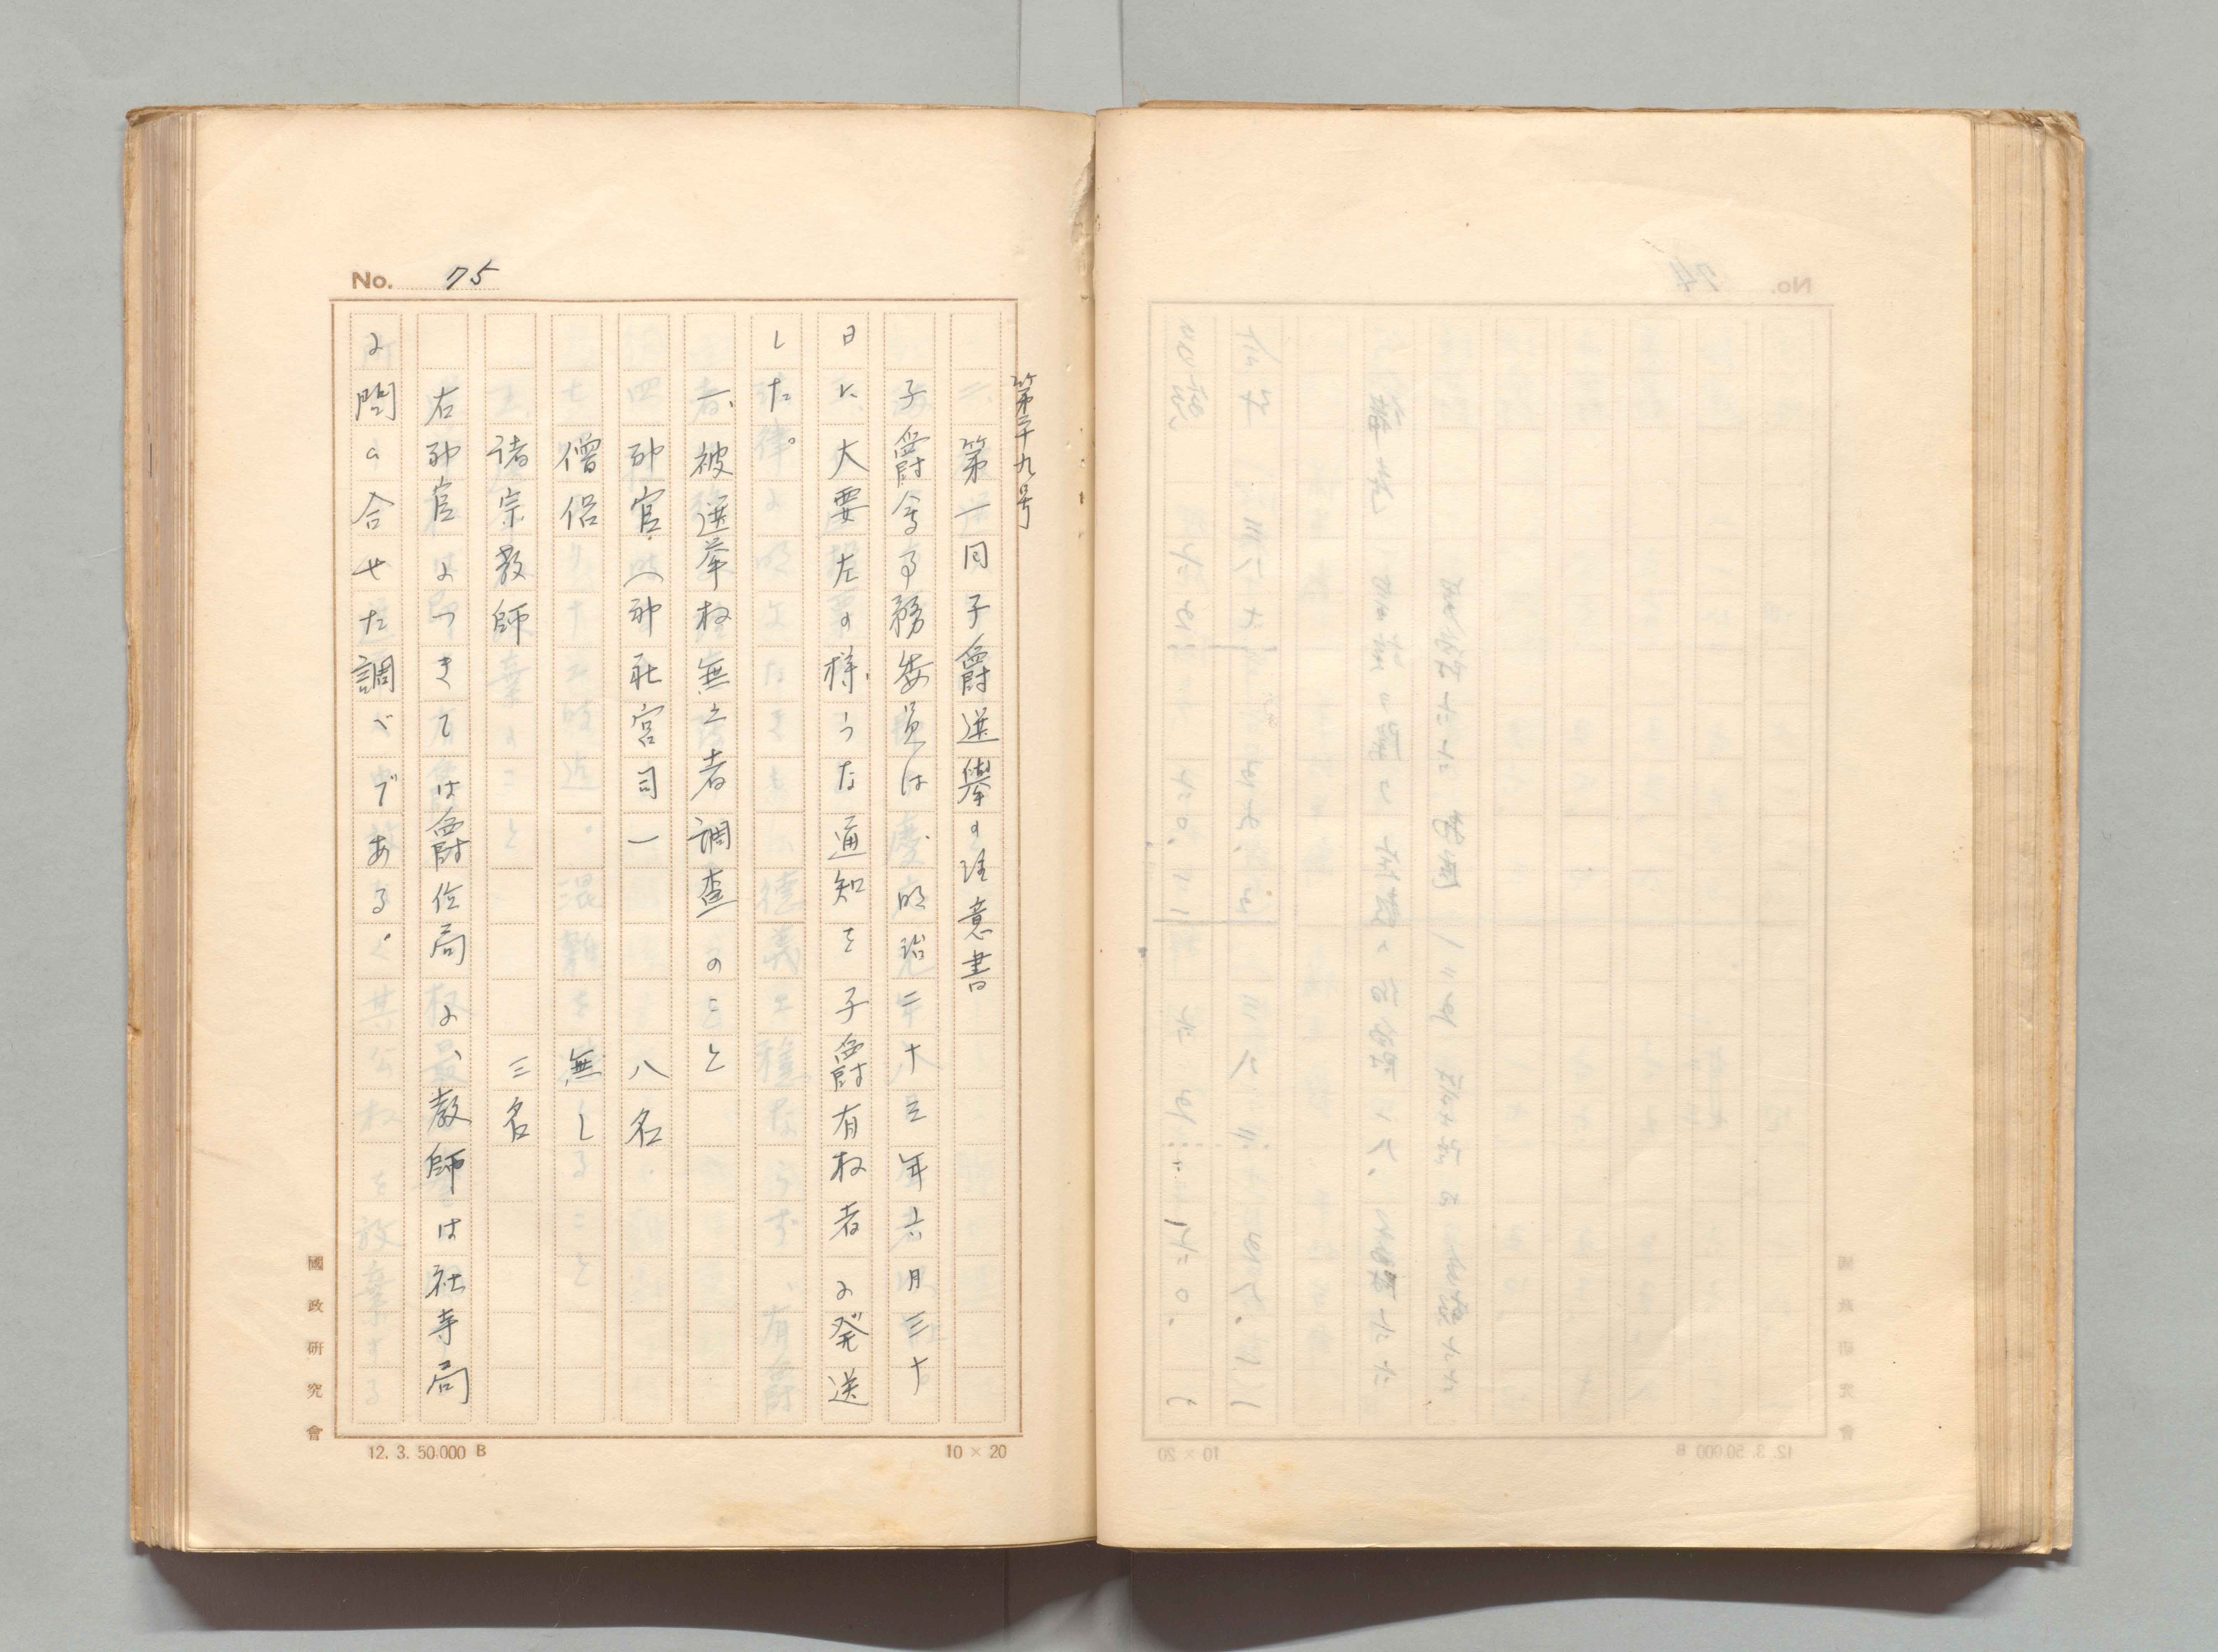 No. 75
第三十九号
第一回子爵選擧の注意書
子爵會事務委員は、明治二十三年六月三十
日に大要左の様、うな通知を子爵有权者に発送
した。
一、被選挙权無之者調査のこと
神官(神社宮司一 八名
僧侶 無し
諸宗教師 三名
右神官につきては爵位局に、教師は社寺局
に問い合せた調べである。
國政研究會
12. 3. 50.000 B
10 × 20